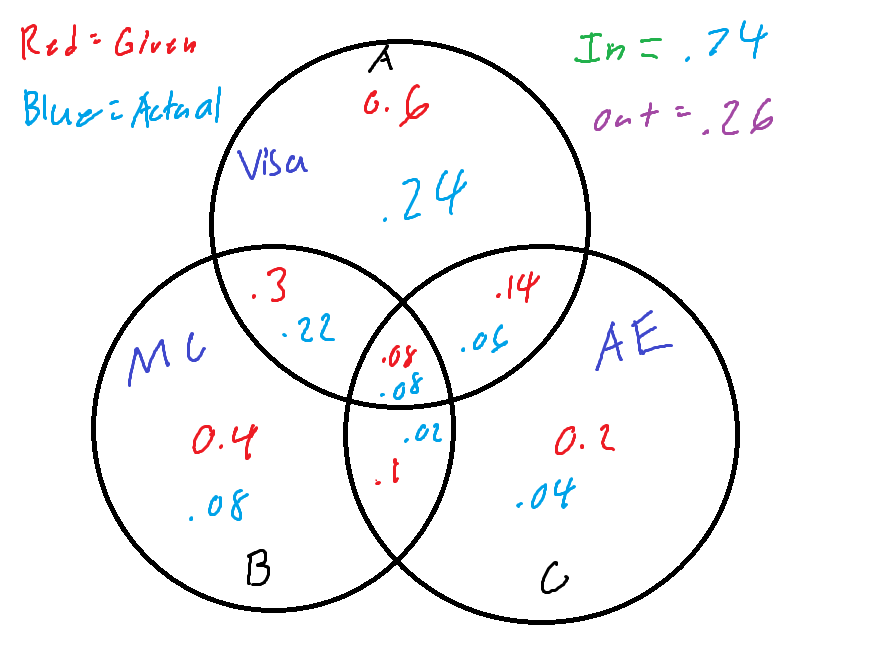 Red = Given
Blue = Actual
In = .74
out = .26
A
0.6
Visa
.24
.3
.22
.14
.06
.08
.08
MC
AE
0.4
.08
.02
.1
0.2
.04
B
C